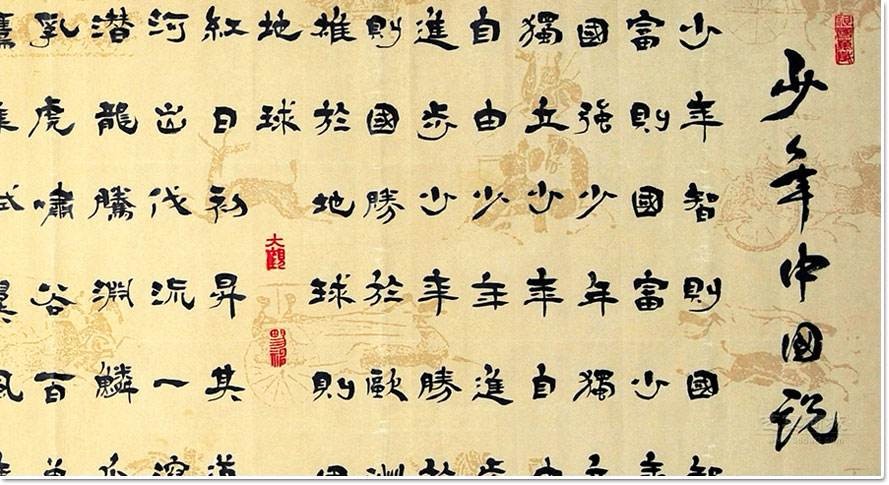 少年中国说
少年智則國智
富則國富少年
國強少年獨立
獨立少年自由
自由少年進步
進步少年勝於
則國勝於歐洲
雄於地球則國
地球
紅日初昇其道
河出伏流一瀉
潛龍騰淵鱗爪
乳虎嘯谷百獸